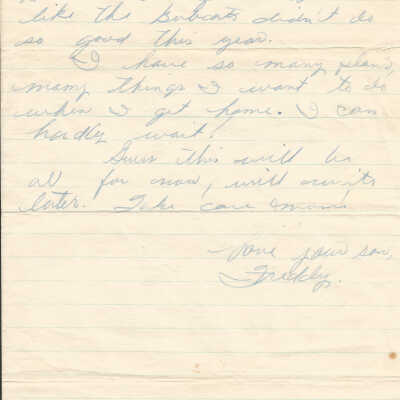 like the Bobcats didn't do
so good this year.
I have so many plans,
many things I want to do
when I get home. I can
hardly wait!
Guess this will be
all for now, will write
later. Take care mom!
Love your son,